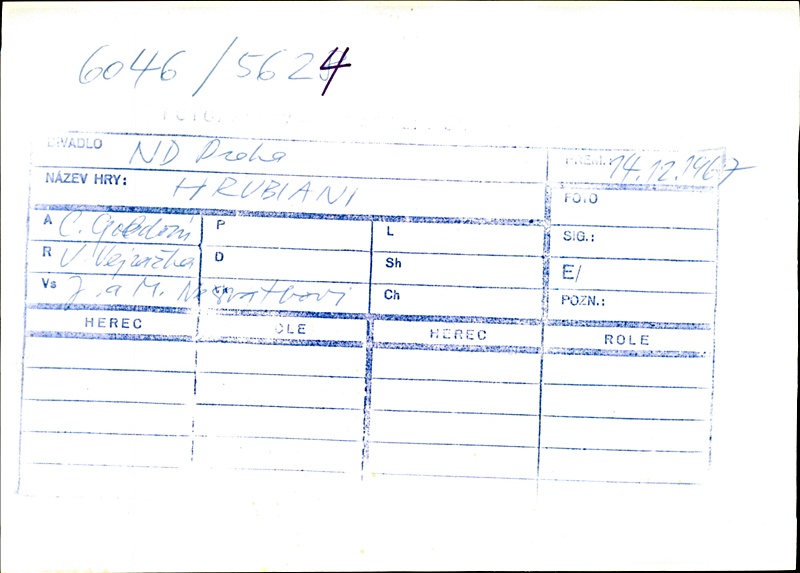 6046/5624
DIVADLO ND Praha PREM.: 14.12.1967
NÁZEV HRY: HRUBIANI FOTO
A C. Goldoni P L SIG.:
R V. Vejražka D Sh E/
Vs J. a M. Ch POZN.:
HEREC ROLE HEREC ROLE